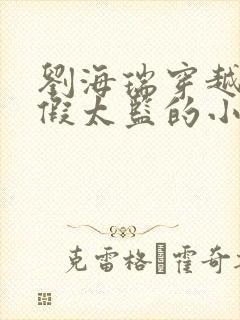 劉海瑞穿越
假太監的小
克雷格·霍奇